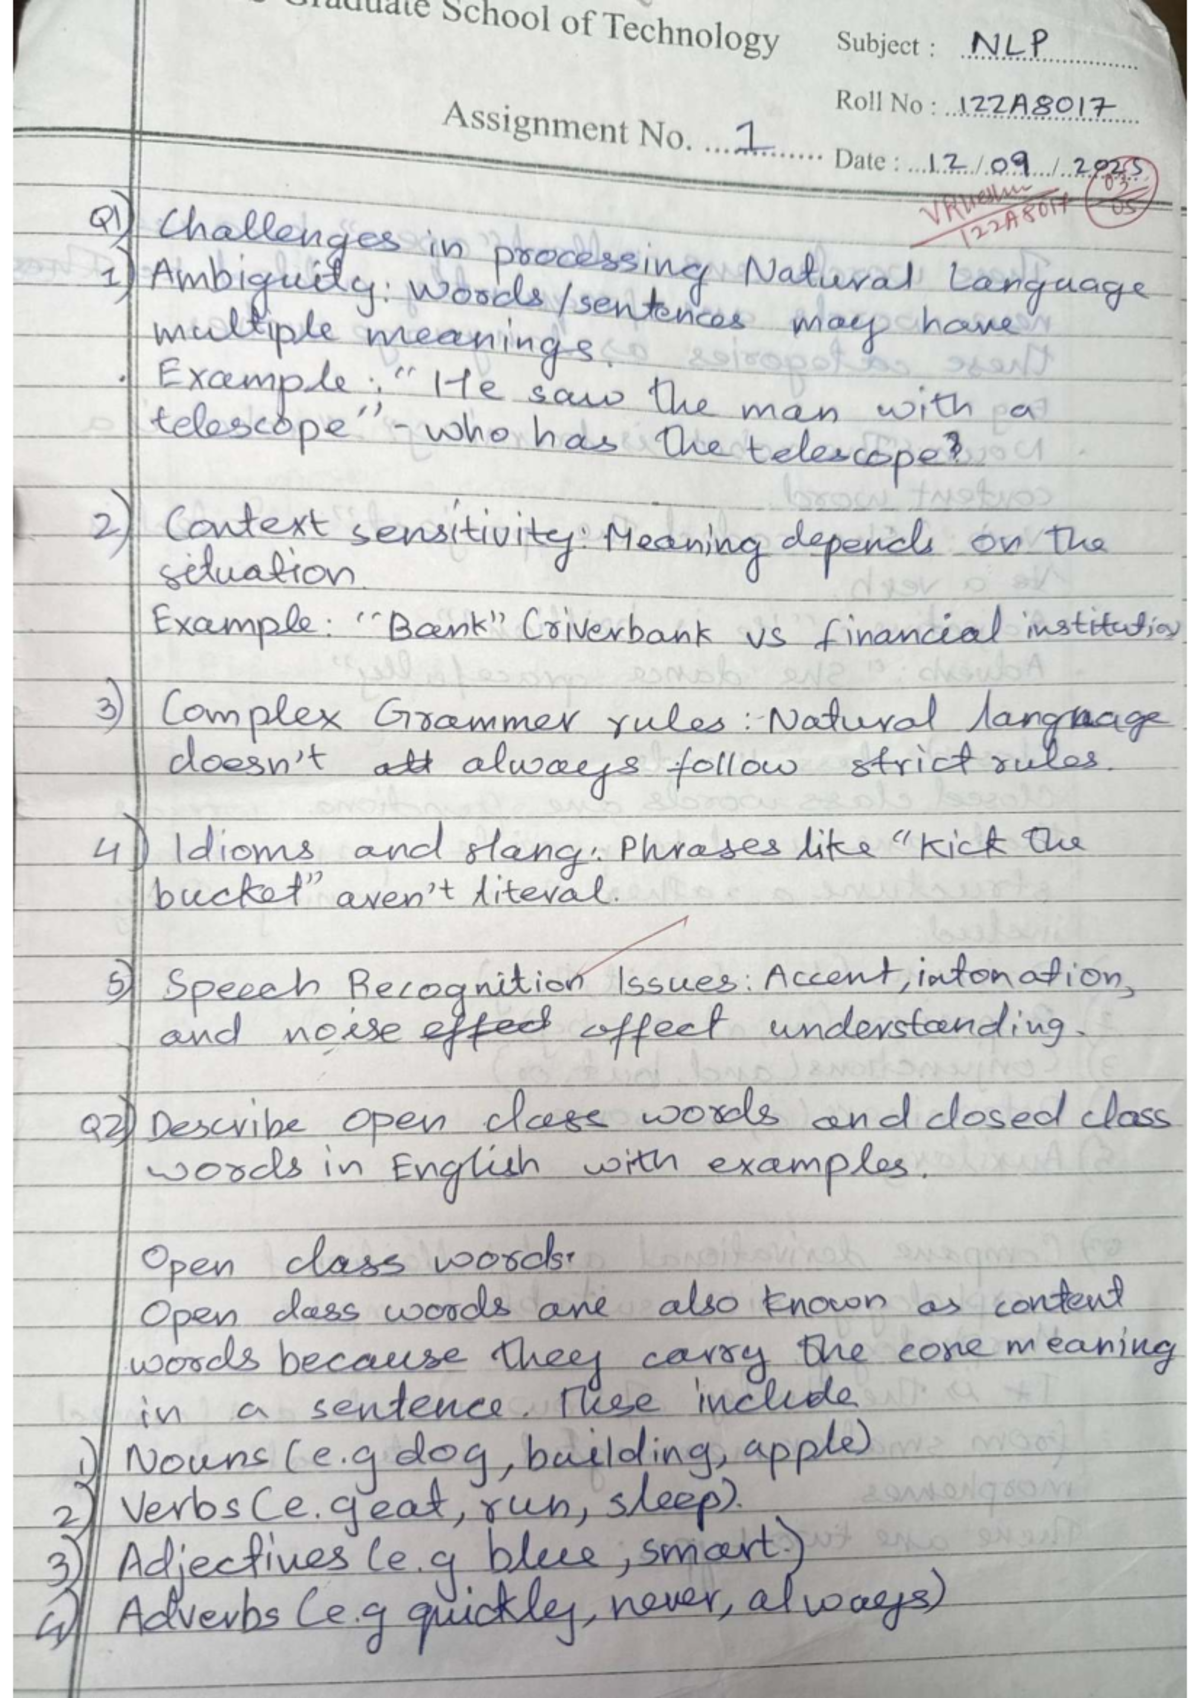 Graduate School of Technology
Subject : NLP
Roll No : 122A8017
Assignment No. 1
Date : 12/09/2025
03/05
122A8017
Q1) Challenges in processing Natural Language
1) Ambiguity: Words/sentences may have
multiple meanings.
Example: "He saw the man with a
telescope" - who has the telescope?
2) Context sensitivity: Meaning depends on the
situation.
Example: "Bank" (riverbank vs financial institution
3) Complex Grammer rules: Natural language
doesn't always follow strict rules.
4) Idioms and slang: Phrases like "kick the
bucket" aren't literal.
5) Speech Recognition Issues: Accent, intonation,
and noise effect affect understanding.
Q2) Describe open class words and closed class
words in English with examples.
Open class words:
Open class words are also known as content
words because they carry the core meaning
in a sentence. These include
1) Nouns (e.g dog, building, apple)
2) Verbs (e.g eat, run, sleep).
3) Adjectives (e.g blue, smart.)
4) Adverbs (e.g quickley, never, always)